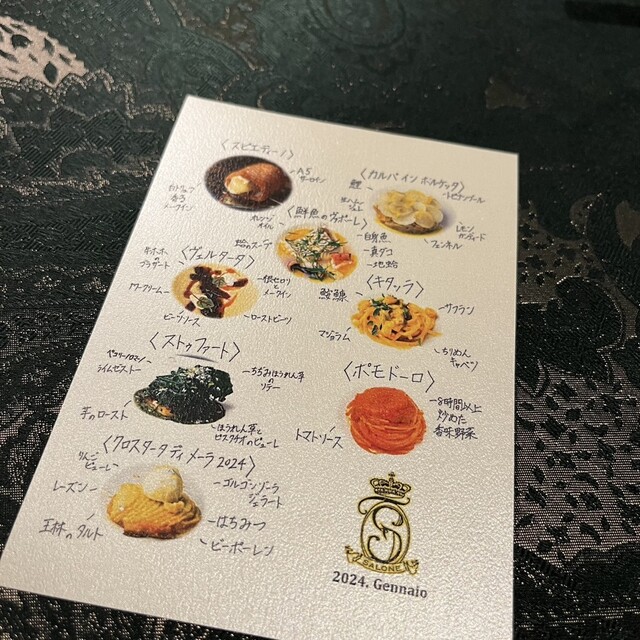 〈スピエディーノ〉
A5
サーロイン
香る
メークイン
オレンジ
オイル
〈カルパ イン ポルケッタ〉
鯉
レモン
フェンネル
〈鮮魚のヴァポーレ〉
蛤のスープ
白身魚
真ダコ
地蛤
〈ヴェルタータ〉
サワークリーム
ビーツソース
根セロリと
メークイン
ローストビーツ
〈キタッラ〉
鮟鱇
サフラン
マジョラム
ちりめん
キャベツ
〈ストゥファート〉
ペコリーノロマーノ
ライムゼスト
ちぢみほうれん草
の
ソテー
芋のロースト
ほうれん草と
ピスタチオのピューレ
〈ポモドーロ〉
8時間以上
炒めた
香味野菜
トマトソース
〈クロスタータ ディ メーラ 2024〉
りんご
ピューレ
レーズン
王林のタルト
ゴルゴンゾーラ
ジェラート
はちみつ
ビーポーレン
SALONE
2024. Gennaio